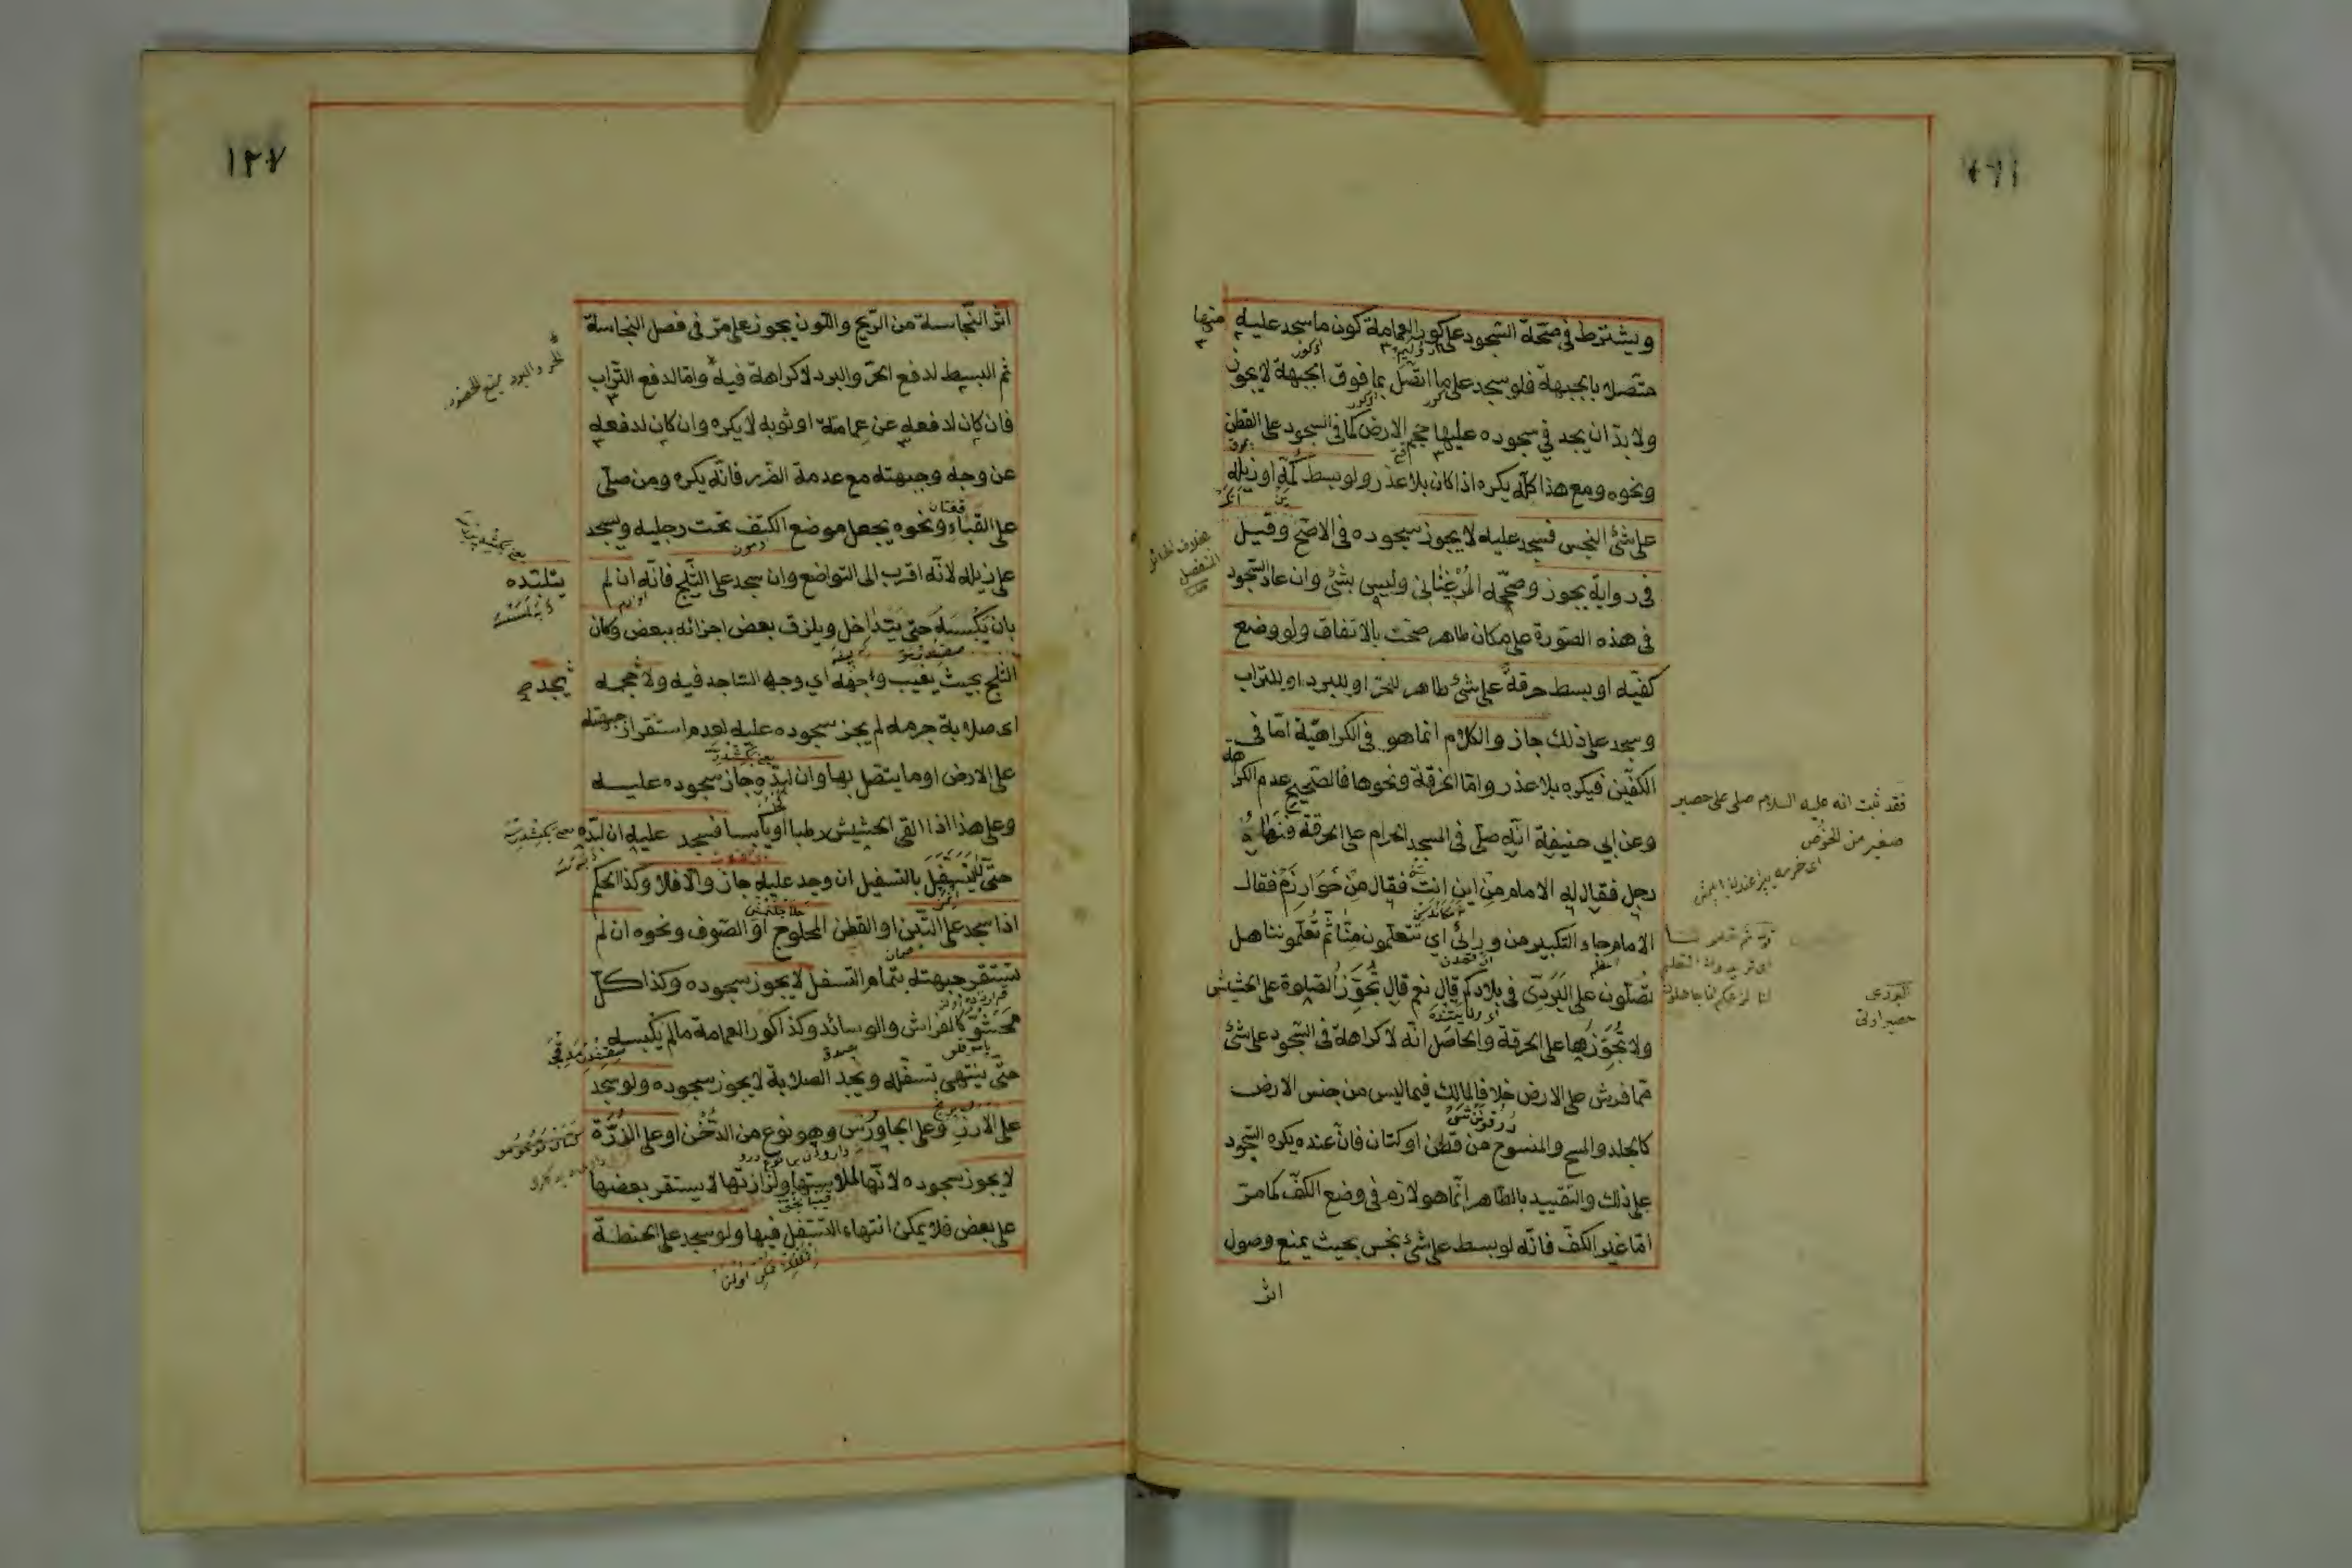 ويشترط في صحة السجود على كور العمامة كون ما سجد عليه منها
متصلا بالجبهة فلو سجد على ما اتصل بما فوق الجبهة لا يجوز
ولا بدّ ان يجد في سجوده عليها حجم الارض كما في السجود على القطن
ونحوه ومع هذا كلّه يكره اذا كان بلا عذر ولو بسط كمّه او ذيله
على شئ النجس فسجد عليه لا يجوز سجوده في الاصحّ وقيل
في رواية يجوز وصحّحه المرغيناني وليس بشئ وان عاد السجود
في هذه الصورة على مكان طاهر صحّت بالاتفاق ولو وضع
كفّيه او بسط خرقة على شئ طاهر للحرّ او للبرد او للتراب
وسجد على ذلك جاز والكلام انما هو في الكراهيّة امّا في
الكفّين فيكره بلا عذر وامّا الخرقة ونحوها فالصحيح عدم الكراهة
وعن ابي حنيفة انّه صلّى في المسجد الحرام على الخرقة فنهاه
رجل فقال له الامام من اين انت فقال من خوارزم فقال
الامام جاء التكبير من ورائي اي تتعلّمون منّا ثم تعلّموننا هل
تصلّون على البردي في بلادكم قال نعم قال تجوّز الصلوة على الحشيش
ولا تجوّزها على الخرقة والحاصل انّه لا كراهة في السجود على شئ
ممّا فرش على الارض خلافا لمالك فيما ليس من جنس الارض
كالجلد والمسح والمنسوج من قطن او كتان فانّ عنده يكره السّجود
على ذلك والتقييد بالطاهر انّما هو لازم في وضع الكفّ كما مرّ
امّا غير الكفّ فانّه لو بسط على شئ نجس بحيث يمنع وصول
اثر
بخلاف الحائل
المنفصل
فقد ثبت انه عليه السلام صلى على حصير
صغير من الخوص
البردى
حصير اوتى
١٢٧
اثر النّجاسة من الرّيح واللّون يجوز على مرّ في فصل النجاسة
ثم البسط لدفع الحرّ والبرد لا كراهة فيه وامّا لدفع التّراب
فان كان لدفعه عن عمامته او ثوبه لا يكره وان كان لدفعه
عن وجه وجبهته مع عدمة الضّرر فانّه يكره ومن صلّى
على القباء ونحوه يجعل موضع الكتف تحت رجليه ويسجد
على ذيله لانّه اقرب الى التواضع وان سجد على الثّلج فانّه ان لم يتلبّده
بان يكبسه حتى يتداخل ويلزق بعض اجزائه ببعض وكان
الثلج بحيث يغيب وجهه اي وجه السّاجد فيه ولا يجد حجمه
اى صلابة جرمه لم يجز سجوده عليه لعدم استقرار جبهته
على الارض او ما يتصل بها وان لبّده جاز سجوده عليه
وعلى هذا اذا القى الحشيش رطبا او يابسا فسجد عليه ان لبّده
حتّى لا يتسفّل بالتسفيل ان وجد عليه جاز والّا فلا وكذا الحكم
اذا سجد على التّبن او القطن المحلوج او الصّوف ونحوه ان لم
تستقر جبهته بتمام التسفل لا يجوز سجوده وكذا كلّ
محشوّ كالفراش والوسائد وكذا كور العمامة ما لم يكبسه
حتّى ينتهى تسفّله ويجد الصلابة لا يجوز سجوده ولو سجد
على الارز وعلى الجاورس وهو نوع من الدخن او على الذرّة
لا يجوز سجوده لانّها لملاستها ولزازتها لا يستقر بعضها
على بعض فلا يمكن انتهاء التّسفل فيها ولو سجد على الحنطة
الحر والبرد يمنع للخضوع